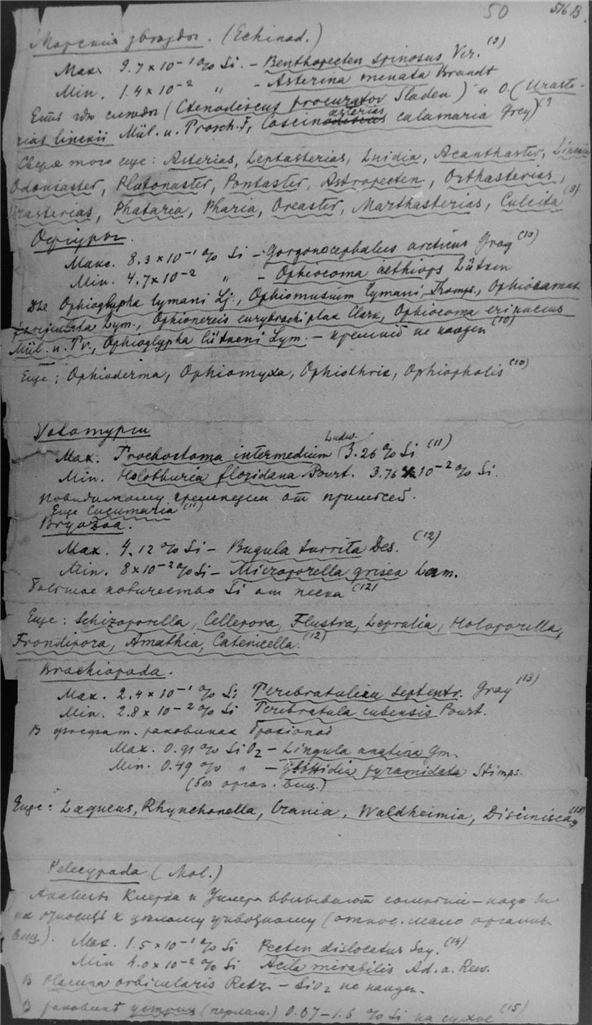 50 516 В.
Морския звезды. (Echinod.)
Макс. 9.7×10⁻¹ % Si. – Benthopecten spinosus Ver. (9)
Мин. 1.4×10⁻² " – Asterina menata Brandt
Есть где следы (Ctenodiscus procurator Sladen) и O.(Uraste-
rias linckii Mül. u. Trosch.?, Coscinasterias calamaria Grey)?
Сверх того еще: Asterias, Leptasterias, Luidia, Acanthaster, Linckia
Odontaster, Plutonaster, Pontaster, Astropecten, Orthasterias,
Urasterias, Phataria, Pharia, Oreaster, Marthasterias, Culcita (9)
Офiуры.
Макс. 8.3×10⁻¹ % Si – Gorgonocephalus arcticus Gray (10)
Мин. 4.7×10⁻² " – Ophiocoma aethiops Lütken
Для Ophioglypha Lymani Lj., Ophiomusium Lymani Thomps., Ophiocamax
fasciculata Lym., Ophionereis eurybrachiplax Clark, Ophiocoma erinaceus
Mül. u. Tr., Ophioglypha lütkeni Lym. – кремний не найден (10)
Еще: Ophioderma, Ophiomyxa, Ophiothrix, Ophiopholis (10)
Голотурии
Макс. Trochostoma intermedium Ludw. 3.26 % Si (11)
Мин. Holothuria floridana Pourt. 3.76×10⁻² % Si.
повидимому кремнезем от примесей.
Еще Cucumaria (11)
Bryozoa.
Макс. 4.12 % Si – Bugula turrita Des. (12)
Мин. 8×10⁻² % Si – Microporella grisea Lam.
большое количество Si от песка (12)
Еще: Schizoporella, Cellepora, Flustra, Lepralia, Holoporella,
Frondipora, Amathia, Catenicella. (12)
Brachiopoda.
Макс. 2.4×10⁻¹ % Si Terebratulina septentr. Gray (13)
Мин. 2.8×10⁻² % Si Terebratula cubensis Pourt.
В фосфат. раковинах брахiопод
Макс. 0.91 % SiO₂ – Lingula anatina Gm.
Мин. 0.49 % " – Glottidia pyramidata Stimps.
(без орган. вещ.)
Еще: Laqueus, Rhynchonella, Crania, Waldheimia, Discinisca (13)
Pelecypoda (Mol.)
Анализы Кларка и Уилера вызывают сомнения – надо ли
их относить к целому животному (относ. мало органич.
вещ.). Макс. 1.5×10⁻¹ % Si Pecten dislocatus Say. (14)
Мин 4.0×10⁻² % Si Acila mirabilis Ad. a. Reev.
В Placuna orbicularis Retz – SiO₂ не найден.
В раковине (перлам.) 0.07–1.6 % Si на сухое (15)